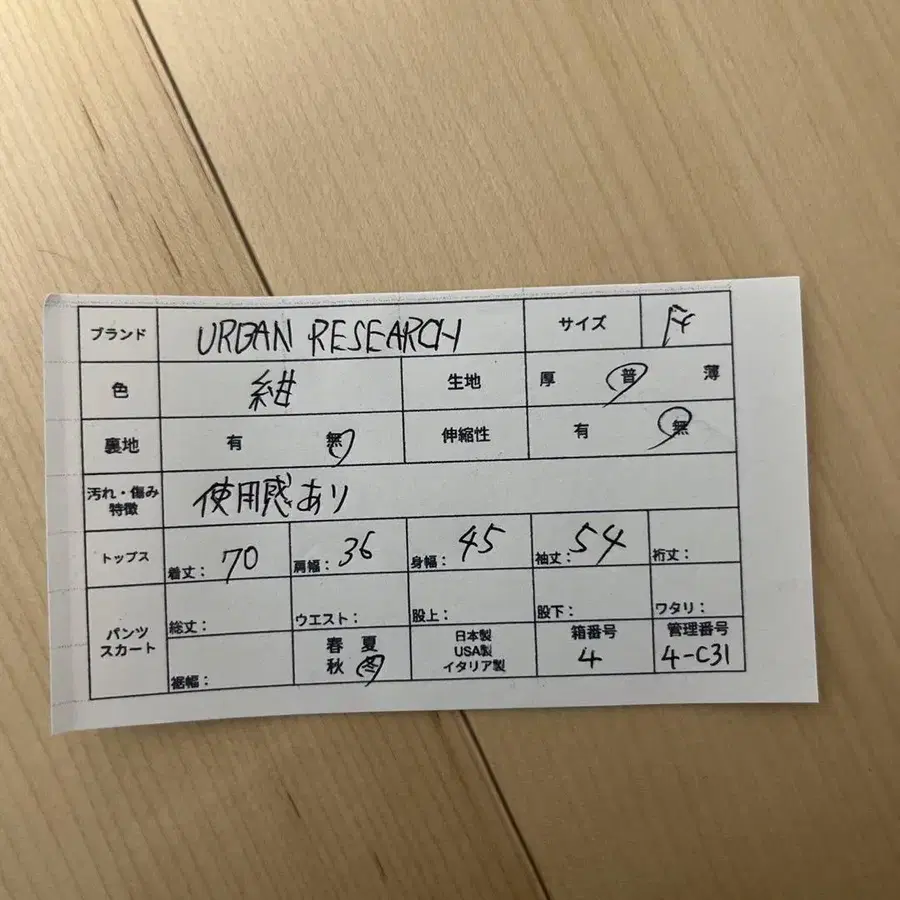 ブランド URBAN RESEARCH サイズ F
色 紺 生地 厚 普 薄
裏地 有 無 伸縮性 有 無
汚れ・傷み 特徴 使用感あり
トップス 着丈: 70 肩幅: 36 身幅: 45 袖丈: 54 裄丈:
パンツ スカート 総丈: ウエスト: 股上: 股下: ワタリ:
裾幅: 春 夏 秋 冬 日本製 USA製 イタリア製 箱番号 4 管理番号 4-C31